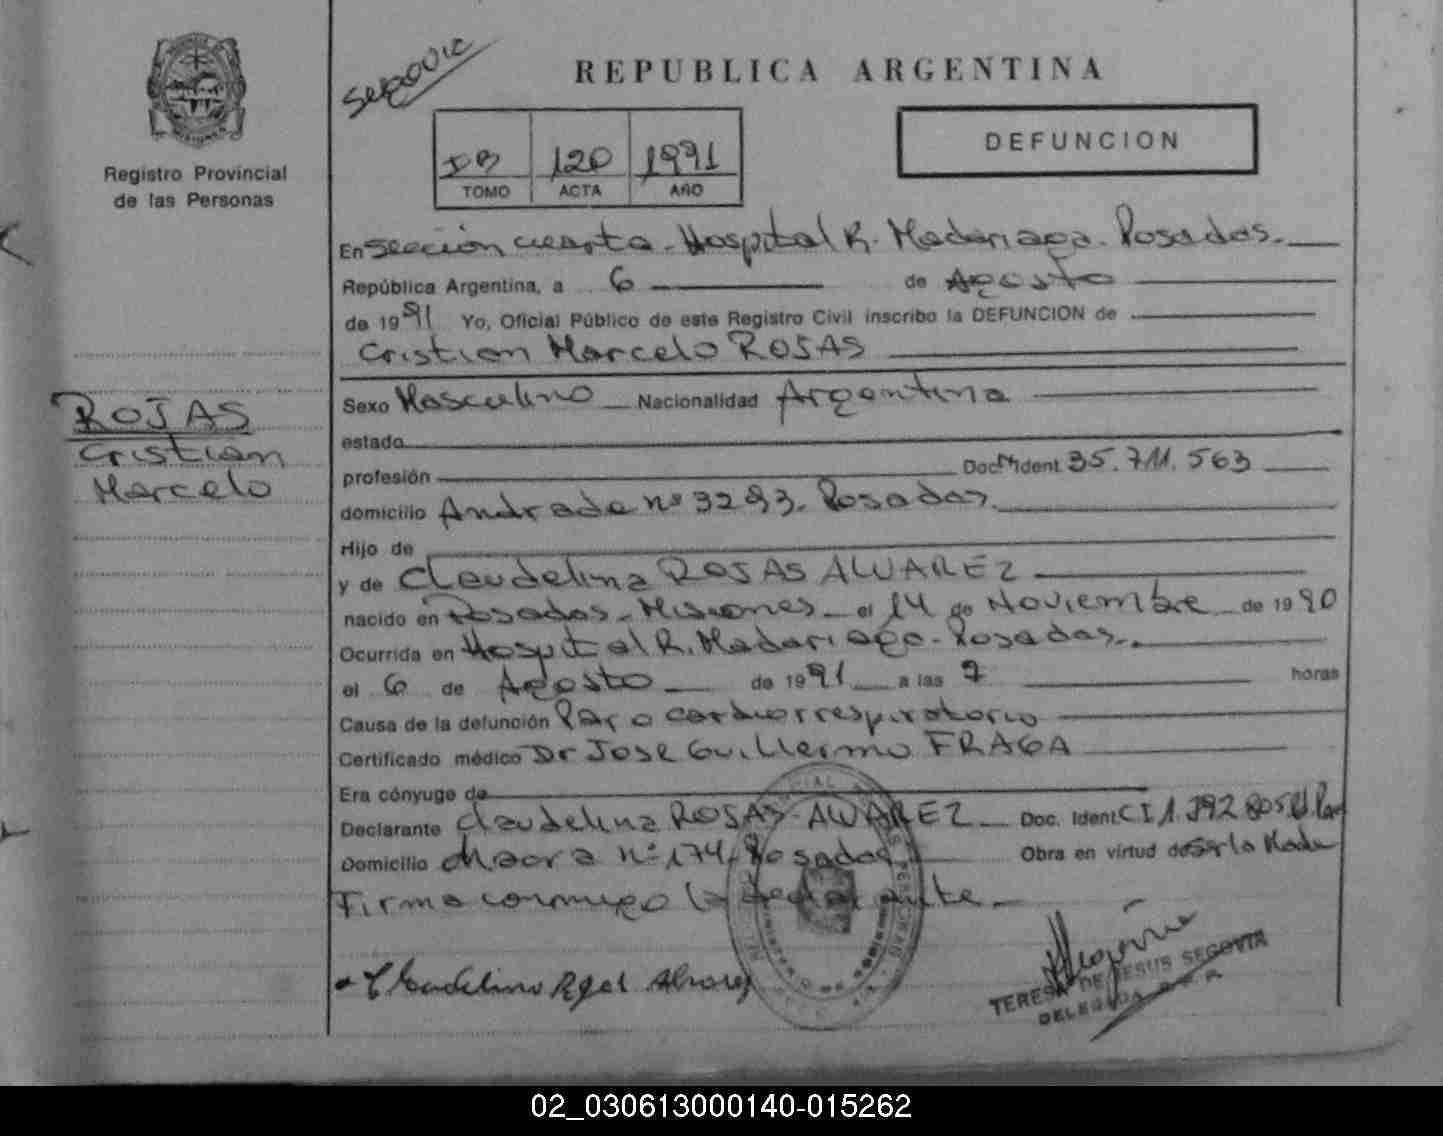 REPUBLICA ARGENTINA
DEFUNCION
120 1991
TOMO ACTA AÑO
Registro Provincial
de las Personas
En Sección cuarta - Hospital R. Madariaga. Posadas.
República Argentina, a 6 de Agosto
de 1991 Yo, Oficial Público de este Registro Civil inscribo la DEFUNCION de
Cristian Marcelo ROJAS
ROJAS
Cristian
Marcelo
Sexo Masculino Nacionalidad Argentina
estado
profesión Doc. Ident. 35.711.563
domicilio Andrade nº 3293. Posadas.
Hijo de
y de Claudelina ROJAS ALVAREZ
nacido en Posadas - Misiones el 14 de Noviembre de 1990
Ocurrida en Hospital R. Madariaga - Posadas.
el 6 de Agosto de 1991 a las 7 horas
Causa de la defunción Paro cardiorrespiratorio
Certificado médico Dr Jose Guillermo FRAGA
Era cónyuge de
Declarante Claudelina ROJAS - ALVAREZ Doc. Ident. CI 1.392.805
Domicilio nº 174. Posadas Obra en virtud de
Firma conmigo la declarante.
Claudelina Rojas Alvarez
TERESA DE JESUS SEGOVIA
DELEGADA
02_030613000140-015262